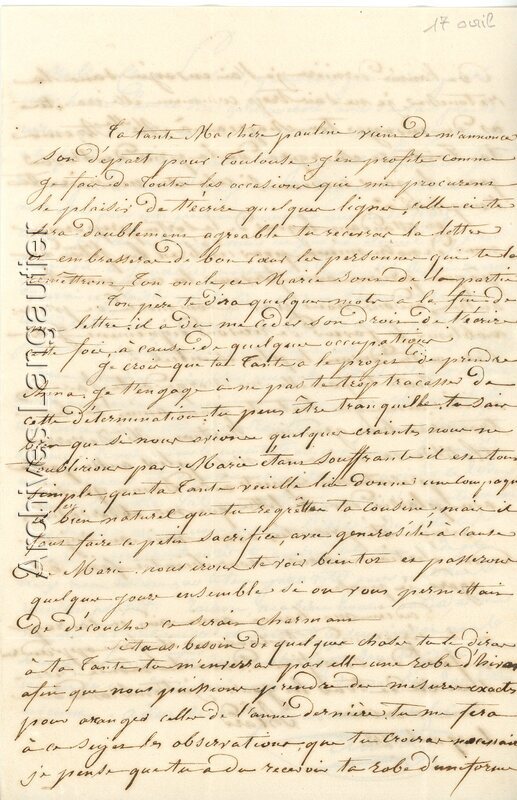 17 avril
Ta tante Ma chère pauline vient de m'annoncer
son départ pour Toulouse, j'en profite comme
je fais de toutes les occasions qui me procurent
le plaisir de t'écrire quelques lignes, celle ci te
sera doublement agreable tu recevras la lettre
embrasseras de bon cœur les personnes qui te la
remettront, Ton oncle, et Marie sont de la partie
Ton père te dira quelques mots à la fin de
ma lettre, il a du me ceder son droit de t'écrire
cette fois, à cause de quelques occupations
Je crois que ta Tante a le projet de prendre
Anna, je t'engage à ne pas te trop tracasser de
cette détermination, tu peux être tranquille, tu sais
bien que si nous avions quelques craintes nous ne
l'oublirions pas. Marie étant souffrante il est tout
simple, que ta Tante veuille lui donner une compagne
bien naturel que tu regrettes ta cousine, mais il
faut faire ce petit sacrifice avec generosité à cause
de Marie. nous irons te voir bientot et passerons
quelques jours ensemble si on vous permettait
de découcher ce serait charmant
Si tu as besoin de quelque chose tu le diras
à ta Tante, tu m'enverras par elle une robe d'hiver
afin que nous puissions prendre des mesures exactes
pour aranger celles de l'année dernière, tu me feras
à ce sujet les observations que tu croiras necessaires
je pense que tu a du recevoir ta robe d'uniforme
Archives Langautier